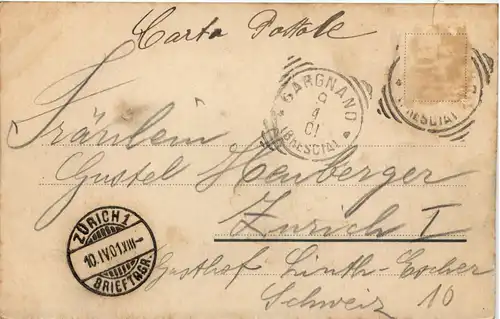 Carta Postale
GARGNANO
9
4
01
(BRESCIA)
(BRESCIA)
Fräulein
Gustel Heuberger
Zürich I
ZÜRICH 1
10.IV.01.XIII-
BRIEFTRGR.
Gasthof Linth-Escher
Schweiz 10